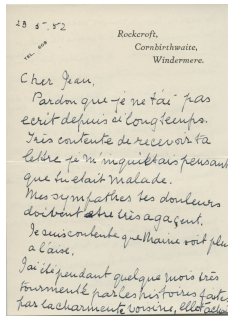 29 5 52
TEL. 608
Rockcroft,
Cornbirthwaite,
Windermere.
Cher Jean,
Pardon que je ne t'ai pas
ecrit depuis si longtemps.
Très contente de recevoir ta
lettre je m'inquiétais pensant
que tu etait malade.
Mes sympathes tes douleurs
doivent etre très agaçent.
Je suis contente que Mamie soit plus
a l'aise.
J'ai été pendant quelque mois très
tourmenté par les histoires faites
par la charmente voisine, elle